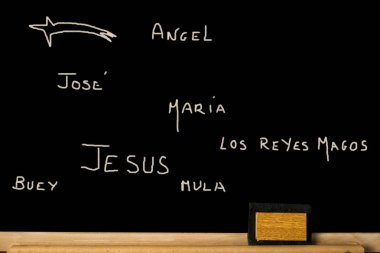 ANGEL
JOSÉ
MARÍA
LOS REYES MAGOS
JESUS
BUEY
MULA